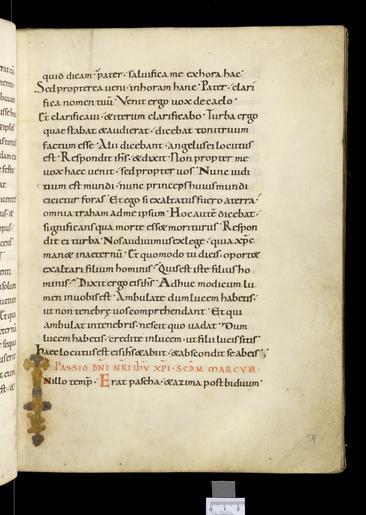 quid dicam · pater · salvifica me ex hora hac ·
Sed propterea veni in horam hanc · Pater · clari
fica nomen tuum · Venit ergo vox de caelo ·
Et clarificavi · & iterum clarificabo · Turba ergo
quae stabat & audierat · dicebat tonitruum
factum esse · Alii dicebant · angelus ei locutus
est · Respondit ihs · & dixit · Non propter me
vox haec venit · sed propter vos · Nunc iudi
cium est mundi · nunc princeps huius mundi
eicietur foras · Et ego si exaltatus fuero a terra ·
omnia traham ad me ipsum · Hoc autē dicebat ·
significans qua morte ess& moriturus · Respon
dit ei turba · Nos audivimus ex lege · quia xps
man& in aeternū · Et quomodo tu dicis · oport&
exaltari filium hominis · Quis est iste filius ho
minis · Dixit ergo eis ihs · Adhuc modicum lu
men in vobis est · Ambulate dum lucem habetis ·
ut non tenebrę vos comprehendant · Et qui
ambulat in tenebris · nescit quo vadat · Dum
lucem habetis · credite in lucem · ut filii lucis sitis
haec locutus est eis ihs & abiit · & abscondit se ab eis
PASSIO DNI NRI IHV XPI · SECDM MARCVM ·
Nillo temp · Erat pascha · & azima post biduum ·